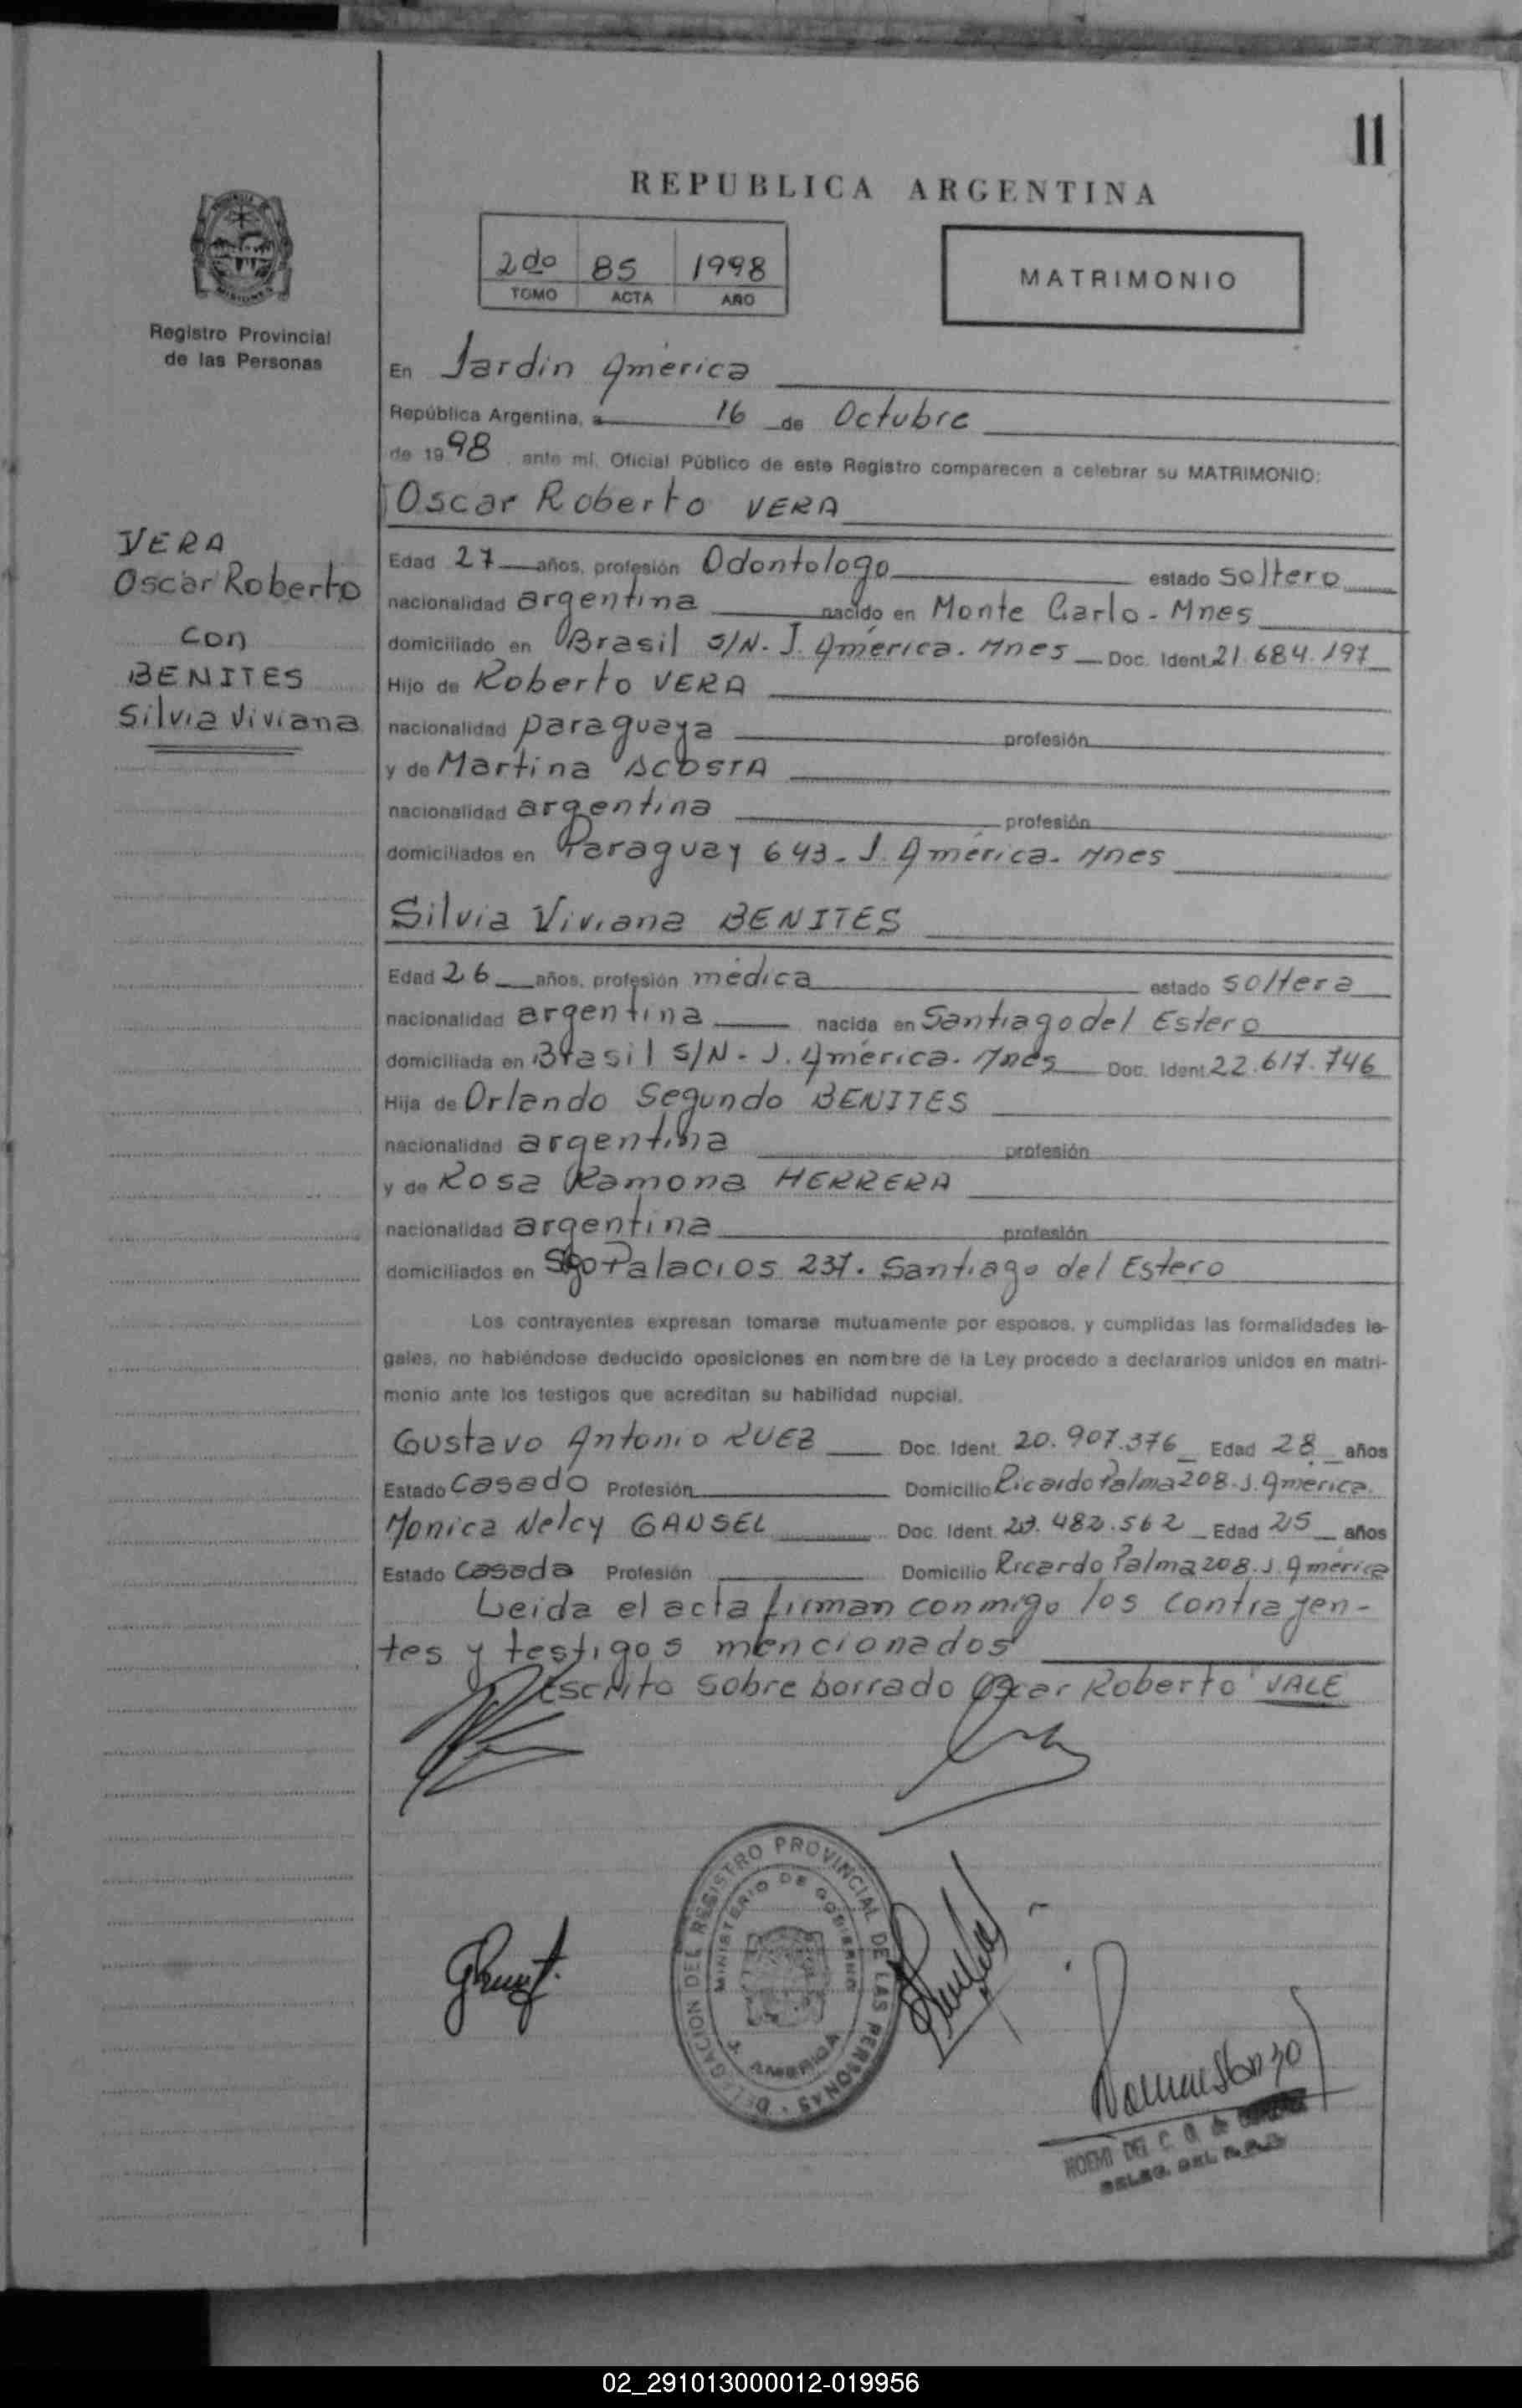 11
REPUBLICA ARGENTINA
2do 85 1998
TOMO ACTA AÑO
MATRIMONIO
MISIONES
Registro Provincial
de las Personas
En Jardin América
República Argentina, a 16 de Octubre
de 1998, ante mí, Oficial Público de este Registro comparecen a celebrar su MATRIMONIO:
Oscar Roberto VERA
VERA
Oscar Roberto
con
BENITES
Silvia Viviana
Edad 27 años, profesión Odontologo estado soltero
nacionalidad argentina nacido en Monte Carlo - Mnes
domiciliado en Brasil S/N - J. América. Mnes Doc. Ident. 21.684.197
Hijo de Roberto VERA
nacionalidad paraguaya profesión
y de Martina ACOSTA
nacionalidad argentina profesión
domiciliados en Paraguay 643 - J. América - Mnes
Silvia Viviana BENITES
Edad 26 años, profesión médica estado soltera
nacionalidad argentina nacida en Santiago del Estero
domiciliada en Brasil S/N - J. América - Mnes Doc. Ident. 22.617.746
Hija de Orlando Segundo BENITES
nacionalidad argentina profesión
y de Rosa Ramona HERRERA
nacionalidad argentina profesión
domiciliados en Palacios 237. Santiago del Estero
Los contrayentes expresan tomarse mutuamente por esposos, y cumplidas las formalidades le-
gales, no habiéndose deducido oposiciones en nombre de la Ley procedo a declararlos unidos en matri-
monio ante los testigos que acreditan su habilidad nupcial.
Gustavo Antonio Doc. Ident. 20.907.376 Edad 28 años
Estado Casado Profesión Domicilio Ricardo Palma 208. J. América.
Monica Nelcy Doc. Ident. 482.562 Edad 25 años
Estado Casada Profesión Domicilio Ricardo Palma 208. J. América
Leida el acta firman conmigo los contrayen-
tes y testigos mencionados
Escrito sobre borrado Oscar Roberto VALE
DELEGACION DEL REGISTRO PROVINCIAL DE LAS PERSONAS
MINISTERIO DE GOBIERNO
J. AMERICA
NOEMI DEL C. G. de
DELEG. DEL R.P.P.
02_291013000012-019956